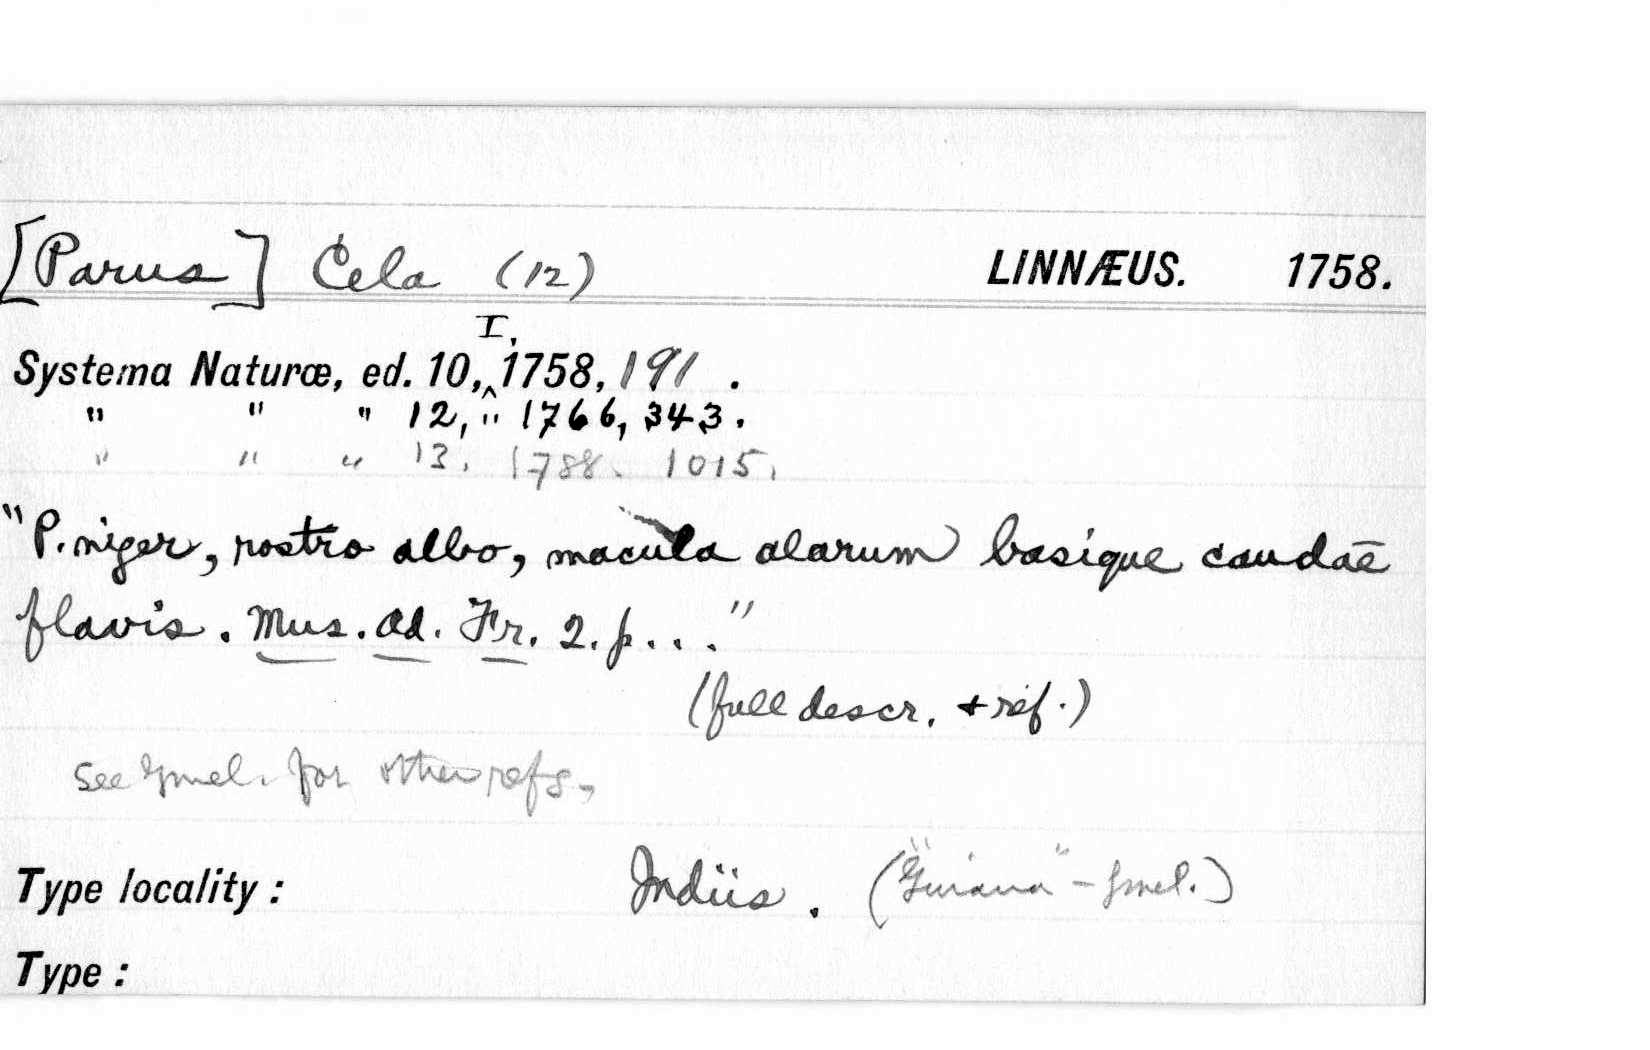 [Parus] Cela (12) LINNÆUS. 1758.
Systema Naturæ, ed. 10, I, 1758, 191 .
" " " 12, " 1766, 343.
" " " 13. 1788. 1015.
"P. niger, rostro albo, macula alarum basique caudae
flavis. Mus. Ad. Fr. 2. p. . ."
(full descr. + ref.)
See Gmel. for other refs.
Type locality: Indiis. ("Guiana" - Gmel.)
Type: